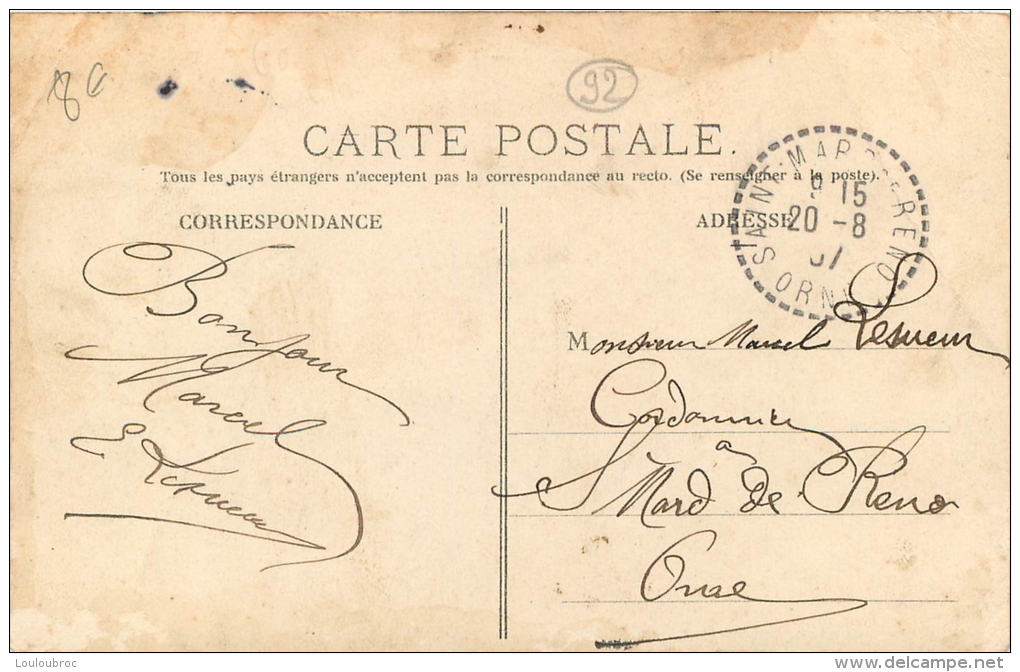 8€
92
CARTE POSTALE.
Tous les pays étrangers n'acceptent pas la correspondance au recto. (Se renseigner à la poste).
CORRESPONDANCE
ADRESSE
SAINT-MARD RENO
9 15
20 -8
07
ORNE
Bonjour
Marcel
E Lesueur
Monsieur Marcel Lesueur
Cordonnier
a
St Mard de Reno
Orne
Louloubroc
www.delcampe.net